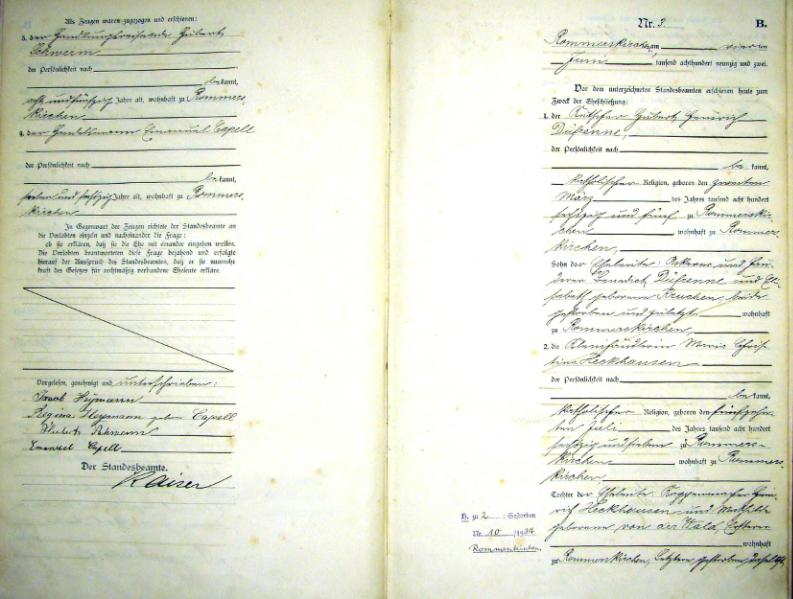 Als Zeugen waren zugezogen und erschienen:
3. der Handlungsreisende Hubert
Schwerm
der Persönlichkeit nach
bekannt,
acht und fünfzig Jahre alt, wohnhaft zu Rommers-
kirchen
4. der Handelsmann Emanuel Capell
der Persönlichkeit nach
bekannt,
sieben und sechzig Jahre alt, wohnhaft zu Rommers-
kirchen
In Gegenwart der Zeugen richtete der Standesbeamte an
die Verlobten einzeln und nacheinander die Frage:
ob sie erklären, daß sie die Ehe mit einander eingehen wollen.
Die Verlobten beantworteten diese Frage bejahend und erfolgte
hierauf der Ausspruch des Standesbeamten, daß er sie nunmehr
kraft des Gesetzes für rechtmäßig verbundene Eheleute erkläre.
Vorgelesen, genehmigt und unterschrieben:
Isaak Heymann
Regina Heymann geb. Capell
Hubert Schwerm
Emanuel Capell
Der Standesbeamte.
Kaiser
Nr. 3. B.
Rommerskirchen am vier
Juni tausend achthundert neunzig und zwei.
Vor dem unterzeichneten Standesbeamten erschienen heute zum
Zweck der Eheschließung:
1. der Kutscher Hubert Heinrich
Düfrenne,
der Persönlichkeit nach
be kannt,
katholischer Religion, geboren den zweiten
März des Jahres tausend acht hundert
sechzig und fünf zu Rommerskir-
chen wohnhaft zu Rommers-
kirchen,
Sohn der Eheleute Ackerer und
Benedict Düfrenne und Eli-
sabeth geborenen Kruchen, beide
gestorben und zuletzt wohnhaft
zu Rommerskirchen,
2. die Kleinhändlerin Maria Chris-
tina Heckhausen
der Persönlichkeit nach
be kannt,
katholischer Religion, geboren den fünfzehn-
ten Juli des Jahres tausend acht hundert
sechzig und sieben zu Rommers-
kirchen wohnhaft zu Rommers-
kirchen
Tochter der Eheleute Kappenmacher Hein-
rich Heckhausen und Mathilde
geborene von der Wald, Ersterer
wohnhaft
zu Rommerskirchen, letztere gestorben, daselbst
H. zu 2 : Gestorben
Nr. 10 /1934
Rommerskirchen